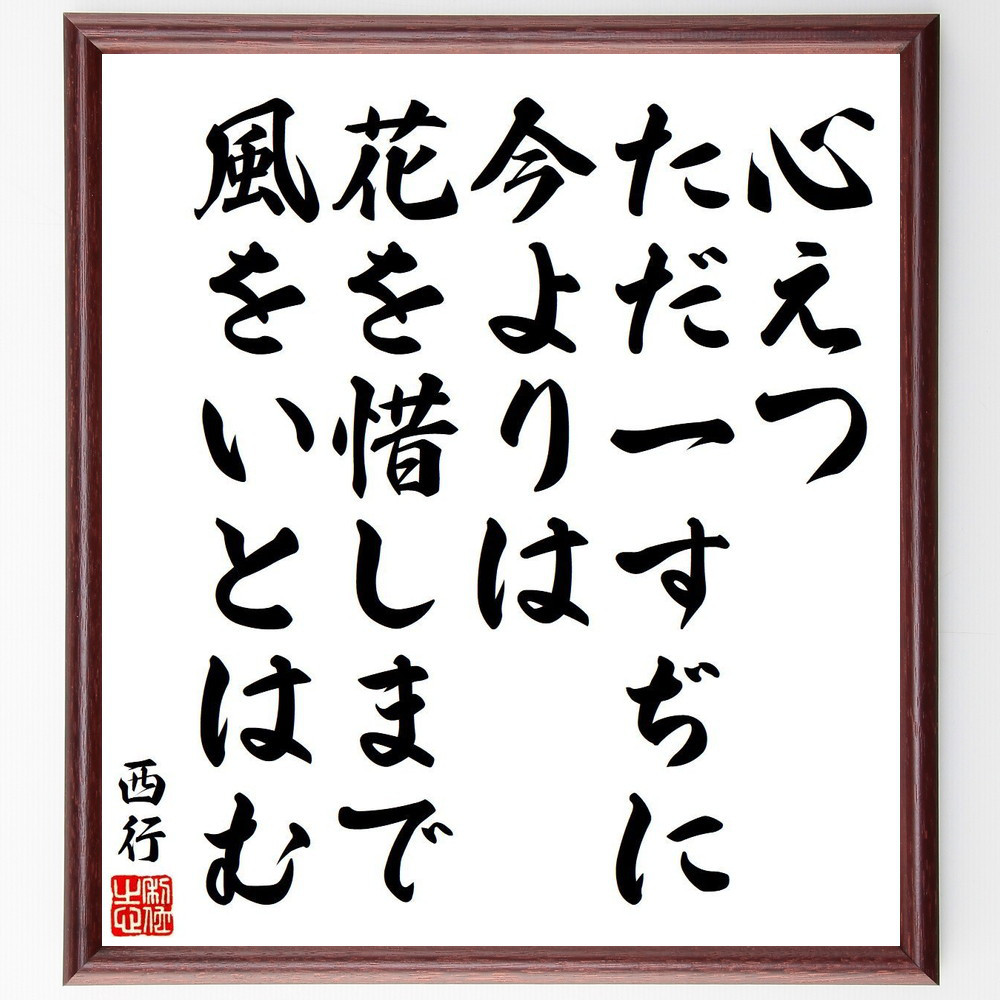 心えつ
ただ一すぢに
今よりは
花を惜しまで
風をいとはむ
西行